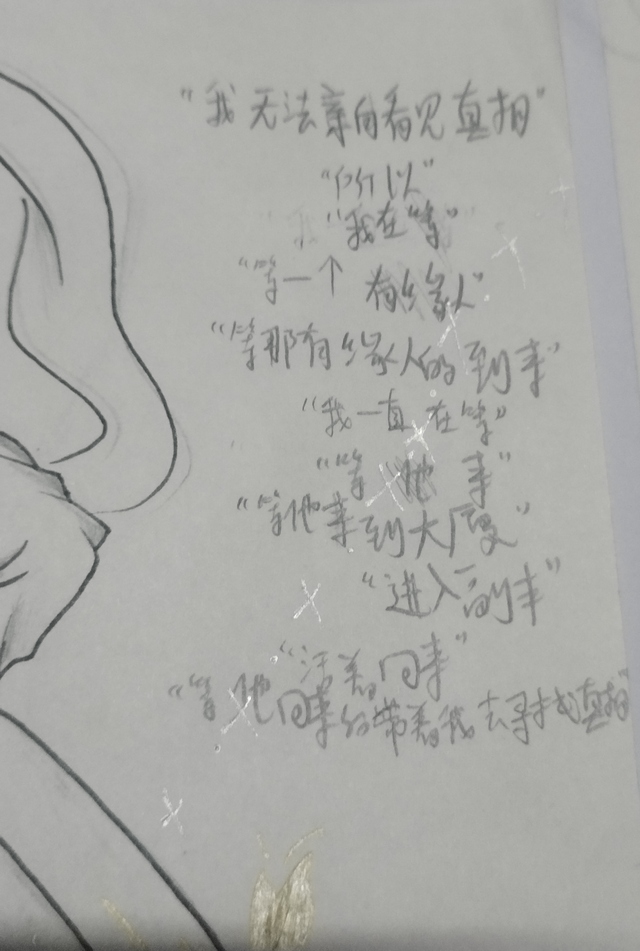 “我无法亲自看见真相”
“所以”
“我在等”
“等一个有缘人”
“等那有缘人的到来”
“我一直在等”
“等他来”
“等他来到大厦”
“进入副本”
“活着回来”
“等他回来的带着我去寻找真相”